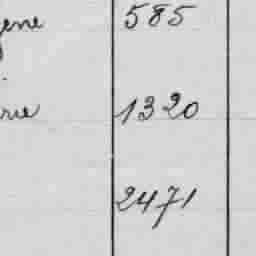 gene 585
rie 1320
2471